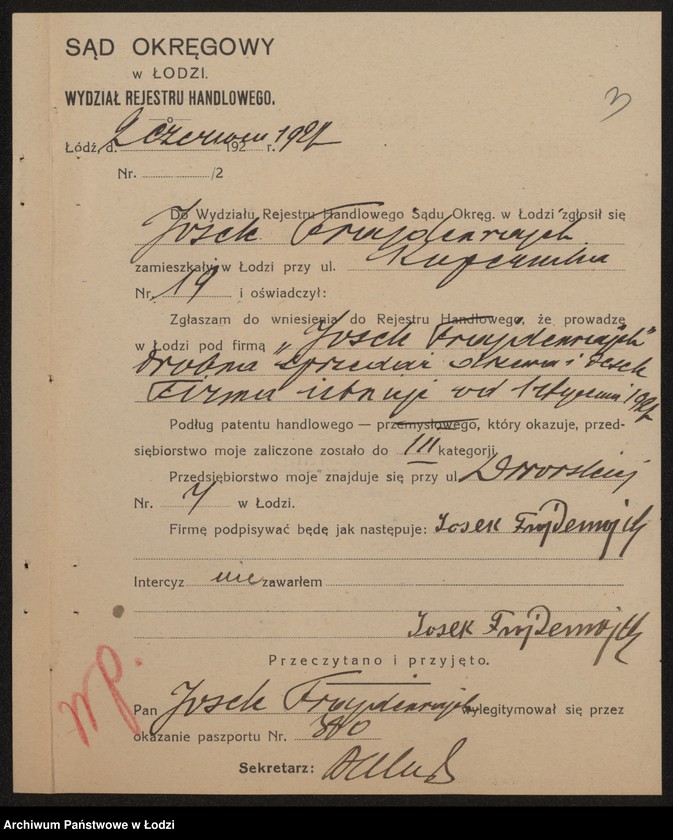 SĄD OKRĘGOWY
w ŁODZI.
WYDZIAŁ REJESTRU HANDLOWEGO.
3
Łódź, d. 2 czerwca 192 r. 1927
Nr. /2
Do Wydziału Rejestru Handlowego Sądu Okręg. w Łodzi zgłosił się
Josek Frajdenrajch
zamieszkały w Łodzi przy ul. Kopernika
Nr. 19 i oświadczył:
Zgłaszam do wniesienia do Rejestru Handlowego, że prowadzę
w Łodzi pod firmą „Josek Frajdenrajch"
drobna sprzedaż drzewa i desek
Firma istnieje od 1 stycznia
Podług patentu handlowego — przemysłowego, który okazuje, przed-
siębiorstwo moje zaliczone zostało do III kategorji
Przedsiębiorstwo moje znajduje się przy ul. Dworskiej
Nr. 7 w Łodzi.
Firmę podpisywać będę jak następuje: Josek Frajdenrajch
Intercyz nie zawarłem
Josek Frajdenrajch
Przeczytano i przyjęto.
Pan Josek Frajdenrajch wylegitymował się przez
okazanie paszportu Nr.
Sekretarz:
Archiwum Państwowe w Łodzi